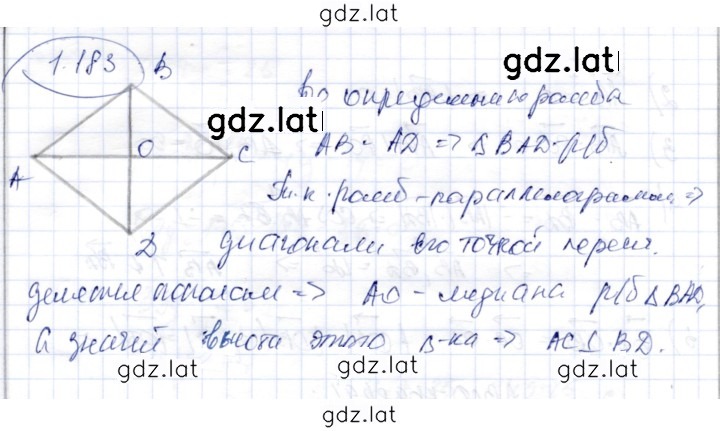 gdz.lat
gdz.lat
1.183
B
По определению ромба
gdz.lat
O
C
A
AB = AD => Δ BAD - р/б.
Т.к. ромб - параллелограмм =>
D
диагонали его точкой перес.
делятся пополам => AO - медиана р/б Δ BAD,
а значит высота этого Δ-ка => AC ⊥ BD.
gdz.lat
gdz.lat
gdz.lat